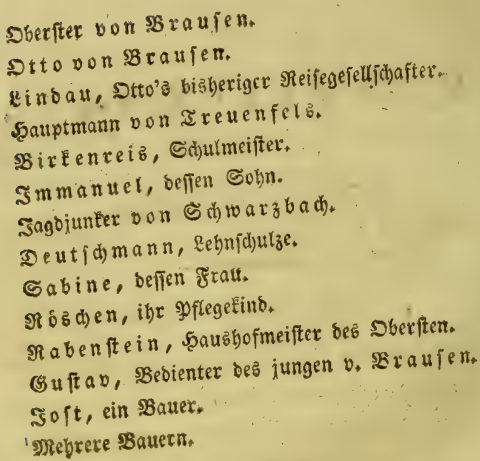 Oberster von Brausen.
Otto von Brausen.
Lindau, Otto's bisheriger Reisegesellschafter.
Hauptmann von Treuenfels.
Birkenreis, Schulmeister.
Immanuel, dessen Sohn.
Jagdjunker von Schwarzbach.
Deutschmann, Lehnschulze.
Sabine, dessen Frau.
Röschen, ihr Pflegekind.
Rabenstein, Haushofmeister des Obersten.
Gustav, Bedienter des jungen v. Brausen.
Jost, ein Bauer.
Mehrere Bauern.